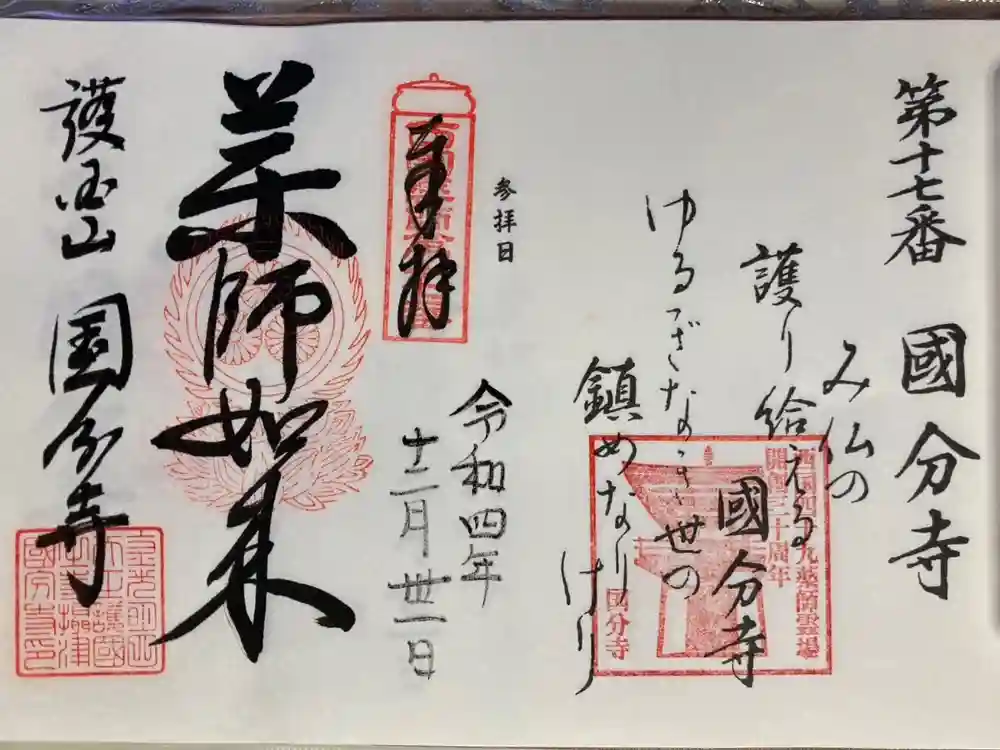 第十七番 國分寺
み仏の
護り給える
國分寺
ゆるぎなき世の
鎮めなりけり
西国四十九薬師霊場
開創三十周年
国分寺
参拝日
奉拝
令和四年
十二月卅一日
薬師如来
護国山 國分寺